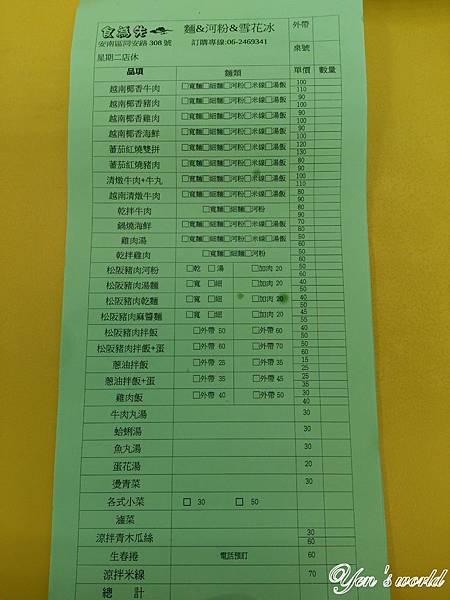 食為先
麵&河粉&雪花冰
外帶
安南區同安路 308 號
訂購專線:06-2469341
桌號
星期二店休
品項 麵類 單價 數量
越南椰香牛肉 □寬麵□細麵□河粉□米線□湯飯 100 110
越南椰香豬肉 □寬麵□細麵□河粉□米線□湯飯 90 100
越南椰香雞肉 □寬麵□細麵□河粉□米線□湯飯 90 100
越南椰香海鮮 □寬麵□細麵□河粉□米線□湯飯 90 100
蕃茄紅燒雙拼 □寬麵□細麵□河粉□米線□湯飯 120 130
蕃茄紅燒豬肉 □寬麵□細麵□河粉□米線□湯飯 90 100
清燉牛肉+牛丸 □寬麵□細麵□河粉□米線□湯飯 100 110
越南清燉牛肉 □寬麵□細麵□河粉□米線□湯飯 80 90
乾拌牛肉 □寬麵□細麵□河粉 80 90
鍋燒海鮮 □寬麵□細麵□河粉□米線□湯飯 70 80
雞肉湯 □寬麵□細麵□河粉□米線□湯飯 50 60
乾拌雞肉 □寬麵□細麵□河粉 50 60
松阪豬肉河粉 □乾 □湯 □加肉 20 40 50
松阪豬肉湯麵 □寬 □細 □加肉 20 40 50
松阪豬肉乾麵 □寬 □細 □加肉 20 40 50
松阪豬肉麻醬麵 □寬 □細 □加肉 20 45 55
松阪豬肉拌飯 □外帶 50 □外帶 60 40 50
松阪豬肉拌飯+蛋 □外帶 60 □外帶 70 50 60
蔥油拌飯 □外帶 25 □外帶 35 15 25
蔥油拌飯+蛋 □外帶 35 □外帶 45 25 35
雞肉飯 □外帶 40 □外帶 50 30 40
牛肉丸湯 30
蛤蜊湯 30
魚丸湯 30
蛋花湯 20
燙青菜 30
各式小菜 □ 30 □ 50
滷菜
涼拌青木瓜絲 30 60
生春捲 電話預訂 60
涼拌米線 70
總 計
Yen's world